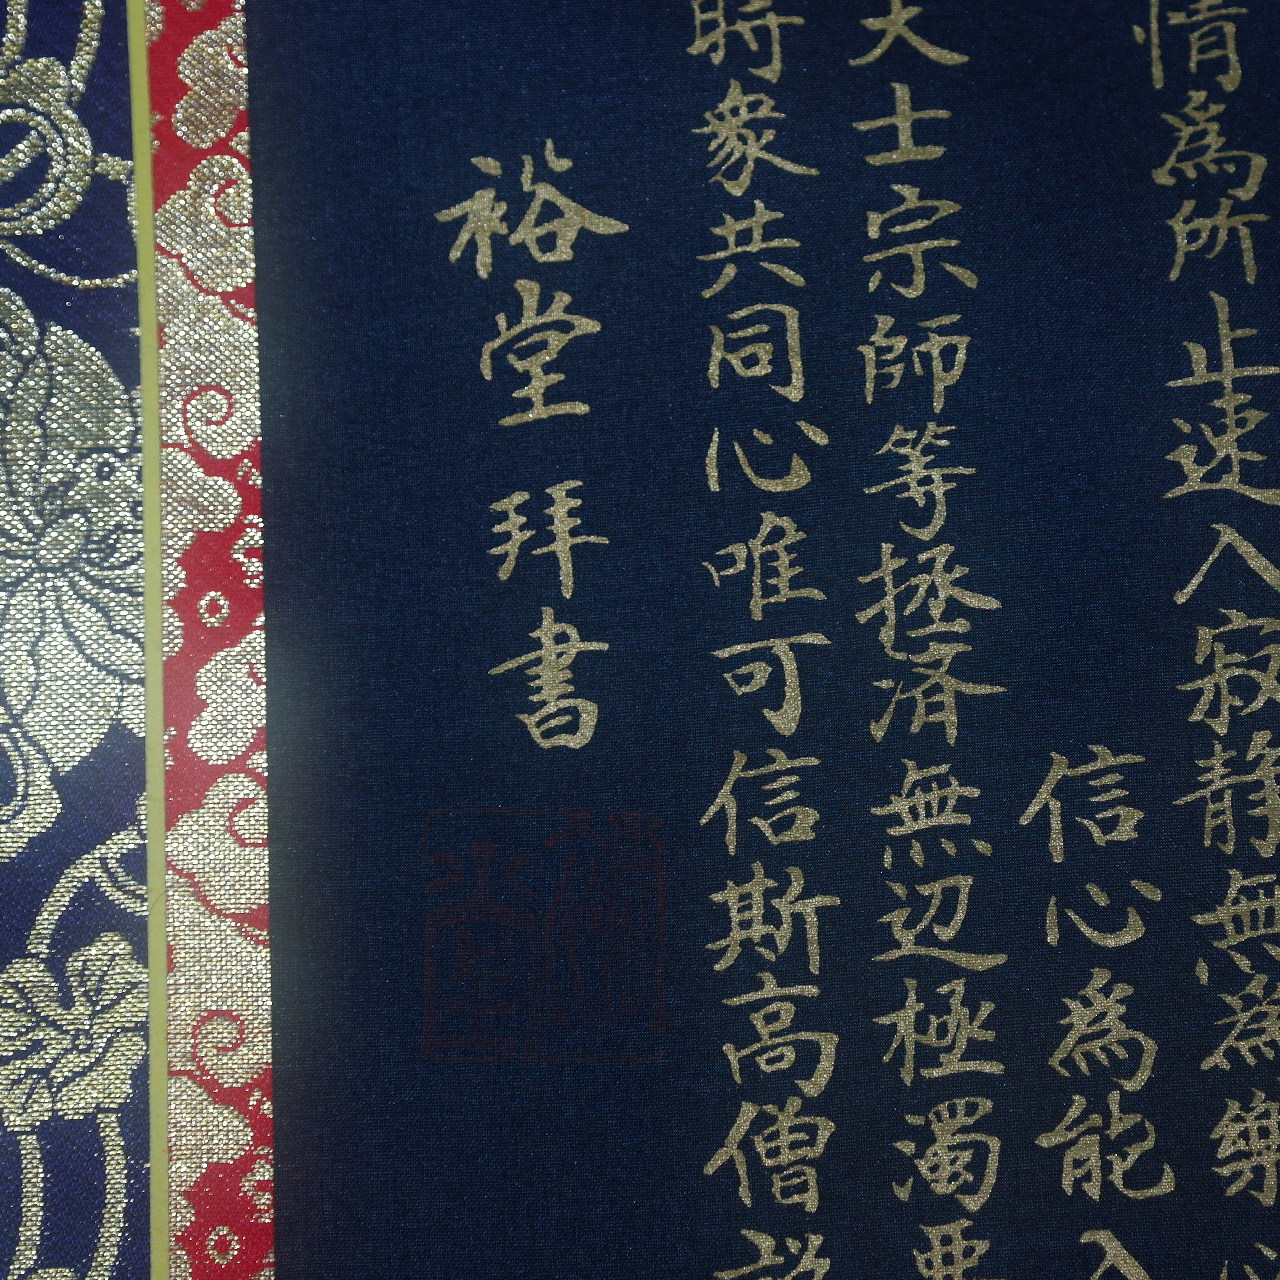 情為所止速入寂静無為樂
信心為能入
大士宗師等拯済無辺極濁悪
時衆共同心唯可信斯高僧説
裕堂 拜書